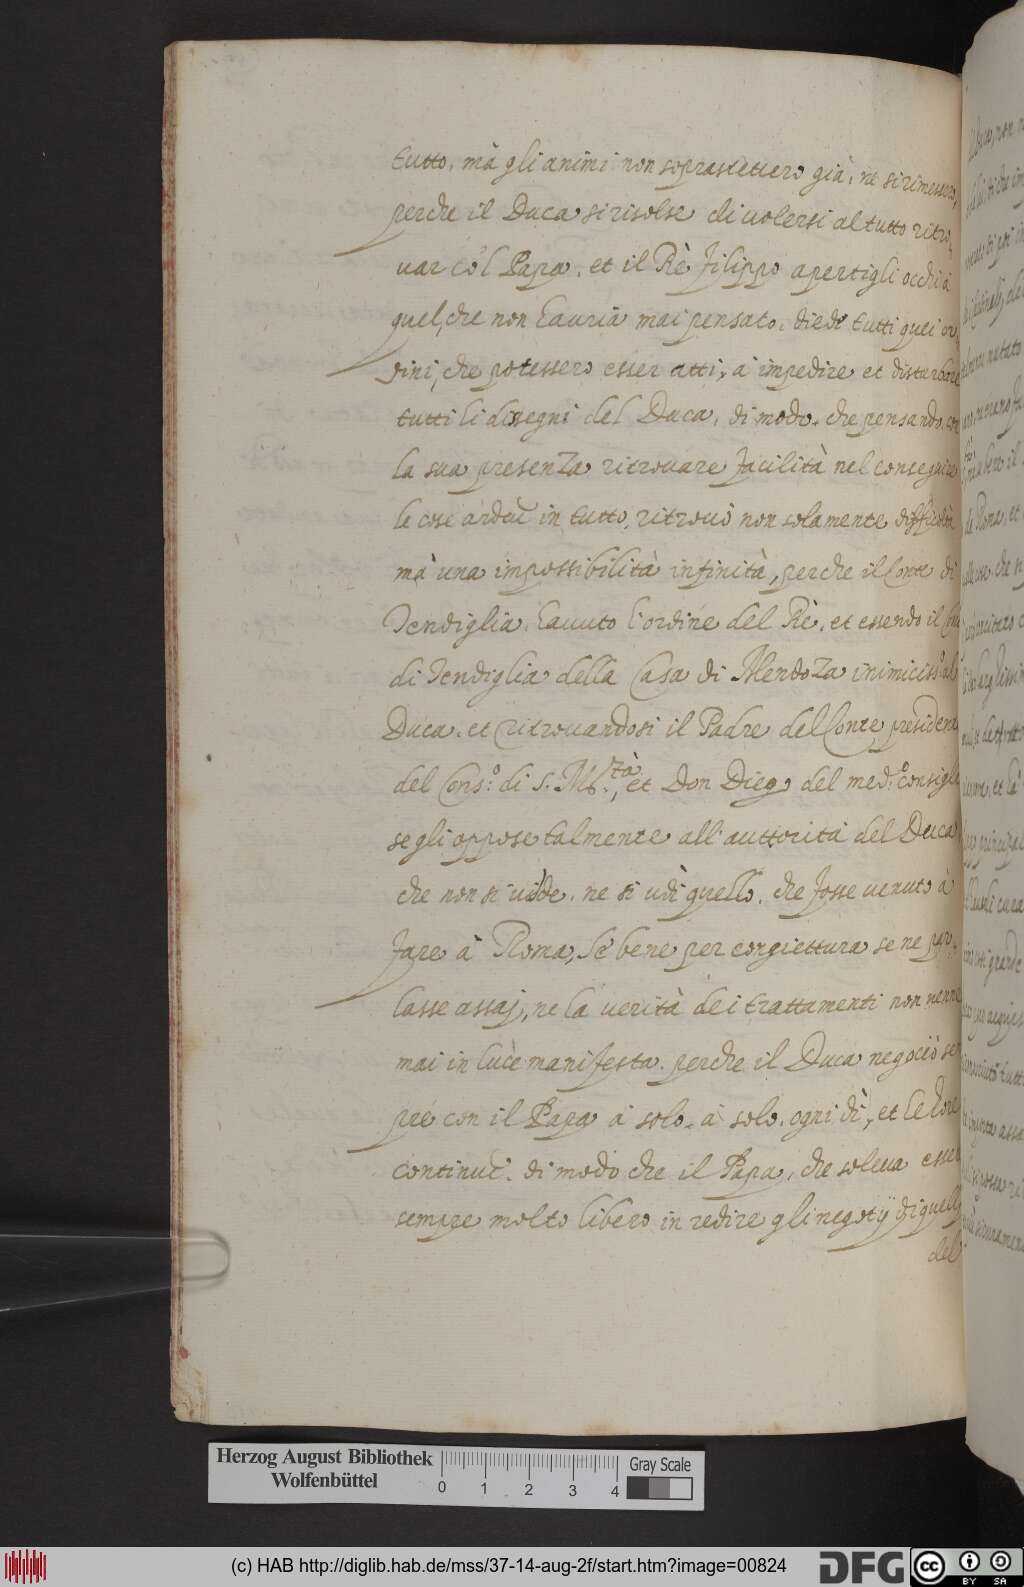 tutto, mà gli animi non soprastettero già, ne si rimessero,
perche il Duca si risolse di uolersi al tutto ritro-
uar co'l Papa. et il Rè filippo aperti gli occhi à
quel, che non hauria mai pensato. diede tutti quei or
dini, che potessero esser atti, à impedire et disturbare
tutti li disegni del Duca, di modo, che pensando, con
la sua presenza ritrouare facilità nel conseguire
le cose ardue in tutto, ritrouò non solamente difficoltà
mà una impossibilità infinità, perche il Conte di
Tendiglia. hauuto l'ordine del Rè, et essendo il Conte
di Tendiglia della Casa di Mendoza inimiciss.o al
Duca. et ritrouandosi il Padre del Conte presidente
del Cons.o di S. M.tà, et Don Diego del med.o consiglio
se gli oppose talmente all' auttorità del Duca
che non si uidde. ne si udì quello, che fosse uenuto à
fare à Roma, Se bene per congiettura se ne par-
lasse assaj, ne la uerità dei trattamenti non uenne
mai in luce manifesta. perche il Duca negociò sem
pre con il Papa à solo, à solo. ogni dì, et le hore
continue. di modo che il Papa, che soleua esser
sempre molto libero in redire gli negotij di quelli
del
Herzog August Bibliothek
Wolfenbüttel
0 1 2 3 4
Gray Scale
(c) HAB http://diglib.hab.de/mss/37-14-aug-2f/start.htm?image=00824
DFG
cc
BY SA